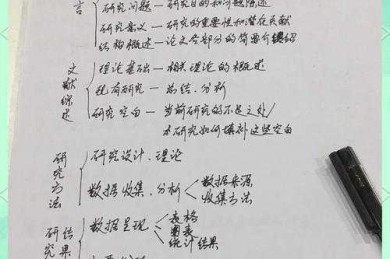 言
研究问题—研究目的和问题陈述
研究意义—研究的重要性和潜在贡献
结构概述—论文各部分的简要介绍
文献综述
理论基础—相关理论的概述
现有研究—总结、分析
研究空白—当前研究的不足之处/
本研究如何填补这些空白
研究方法
研究设计、理论
数据收集、分析
数据来源
收集方法
研究结果
数据呈现
表格
图表
统计结果